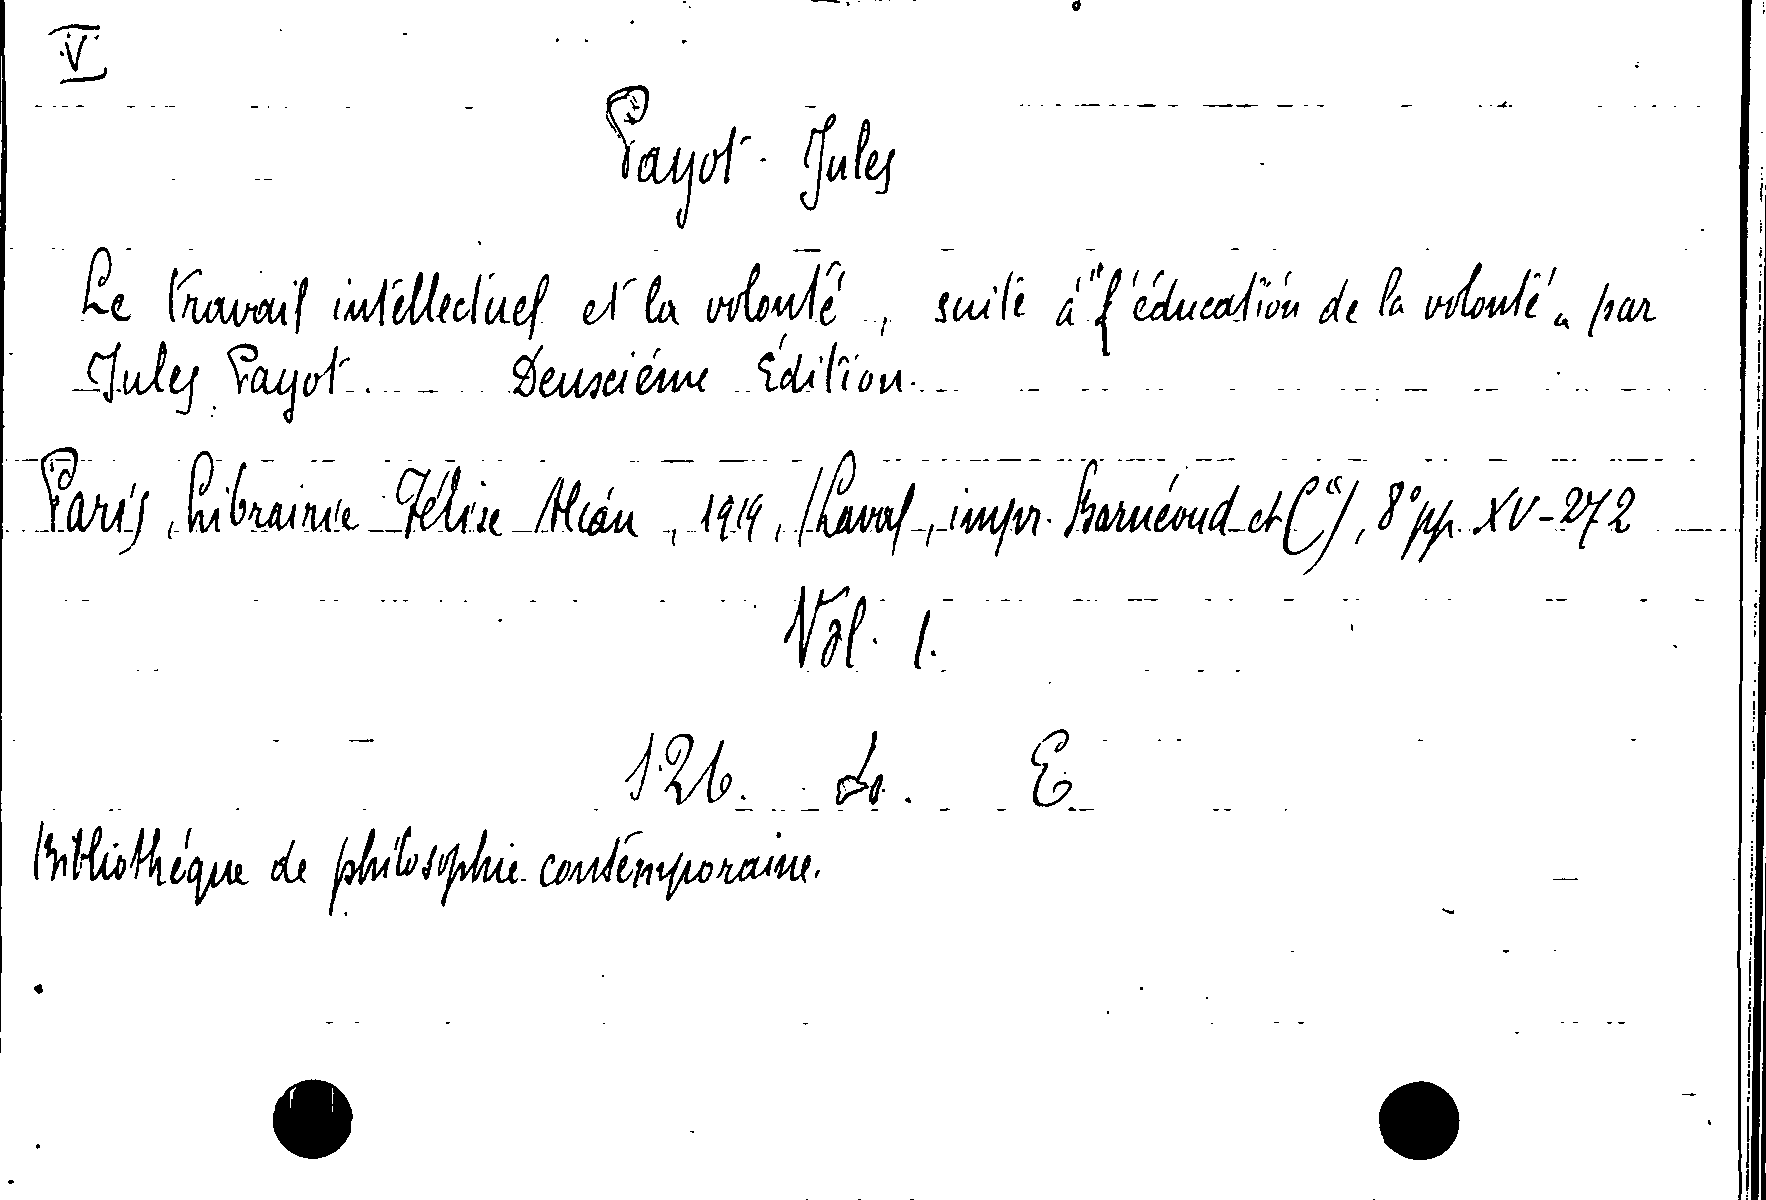 V
Payot. Jules
Le travail intellectuel et la volonté, suite à "l'éducation de la volonté" par
Jules Payot. Deuxième Édition.
Paris, Librairie Félix Alcan, 1919, (Laval, impr. Barnéoud et C°), 8° pp. XV-272
Vol. 1.
126. E
Bibliothéque de philosophie contemporaine.